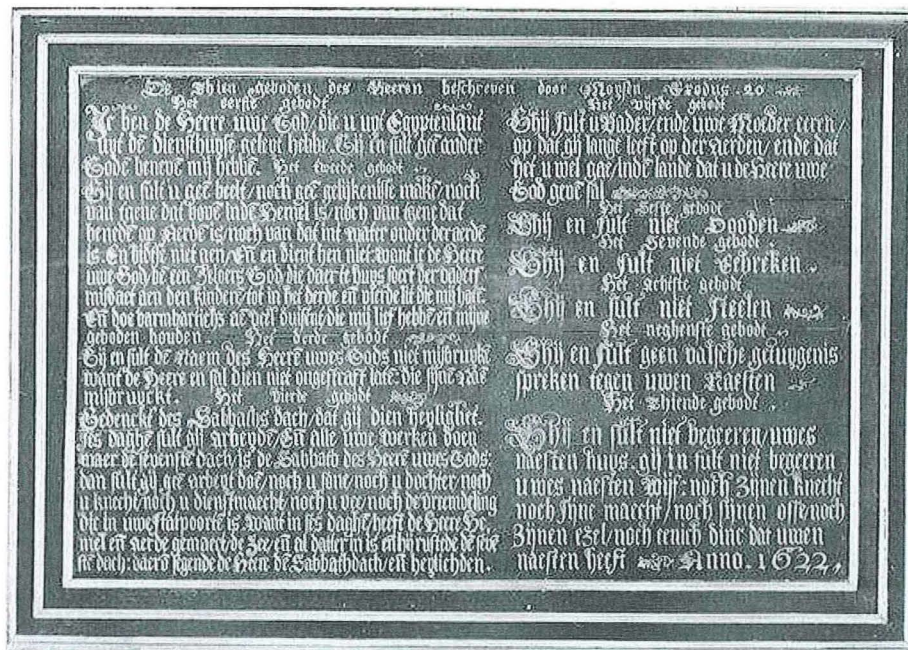 De Thien geboden des Heeren beschreven door Moysen Exodus . 20
Het eerste gebodt
Ic ben de Heere uwe God/die u uyt Egyptenlant
uyt de diensthuyse geleyt hebbe. Gij en sult gee ander
Gode beneve mij hebbe. Het tweede gebodt .
Gij en sult u gee beelt/noch gee gelijkenisse make/noch
van tgene dat bove inde Hemel is/noch van tgene dat
benede op Aerde is/noch van dat int water onder der aerde
is. En bidse niet aen/En en dient hen niet want ic de Heere
uwe God be een God die daer
misdaet aen den kindere/tot in het derde en vierde lit die mij hate.
En doe barmhertichz ae vele duisent/die mij lief hebbe en mijne
geboden houden. Het derde gebodt
Gij en sult de Naem des Heere uwes Gods niet misbruyke
want de Heere en sal dien niet ongestraft late: die sijne nae
misbruyckt. Het vierde gebodt
Gedenckt des Sabbaths dach/dat gij dien heylighet.
Ses daghe sult gij arbeyde/En alle uwe werken doen
maer de sevenste dach/is de Sabbath des Heere uwes Gods:
dan sult gij gee arbeyt doe/noch u sone/noch u dochter/noch
u knecht/noch u dienstmaecht/noch u vee/noch de vremdeling
die in uwe statpoorte is. Want in ses daghe heeft de Heere He,
mel en aerde gemaect/de Zee en al datter in is en hij rustede de seve
ste dach: daero segende de Heere de Sabbathdach/en heylichden.
Het vijfde gebodt
Ghij sult u Vader/ende uwe Moeder eeren/
op dat gij lange leeft op der Aerden/ende dat
het u wel gae/inde lande dat u de Heere uwe
God geve sal
Het seste gebodt
Ghij en sult niet Dooden
Het Sevende gebodt .
Ghij en sult niet Eebreken .
Het achtste gebodt
Ghij en sult niet steelen
Het neghenste gebodt
Ghij en sult geen valsche getuygenis
spreken tegen uwen Naesten
Het Thiende gebodt .
Ghij en sult niet begeeren/uwes
naesten huys. gij in sult niet begeeren
uwes naesten wijf: noch Zijnen knecht
noch sijne maecht/noch sijnen osse noch
Zijnen ezel/noch eenich dinc dat uwen
naesten heeft Anno . 1622,